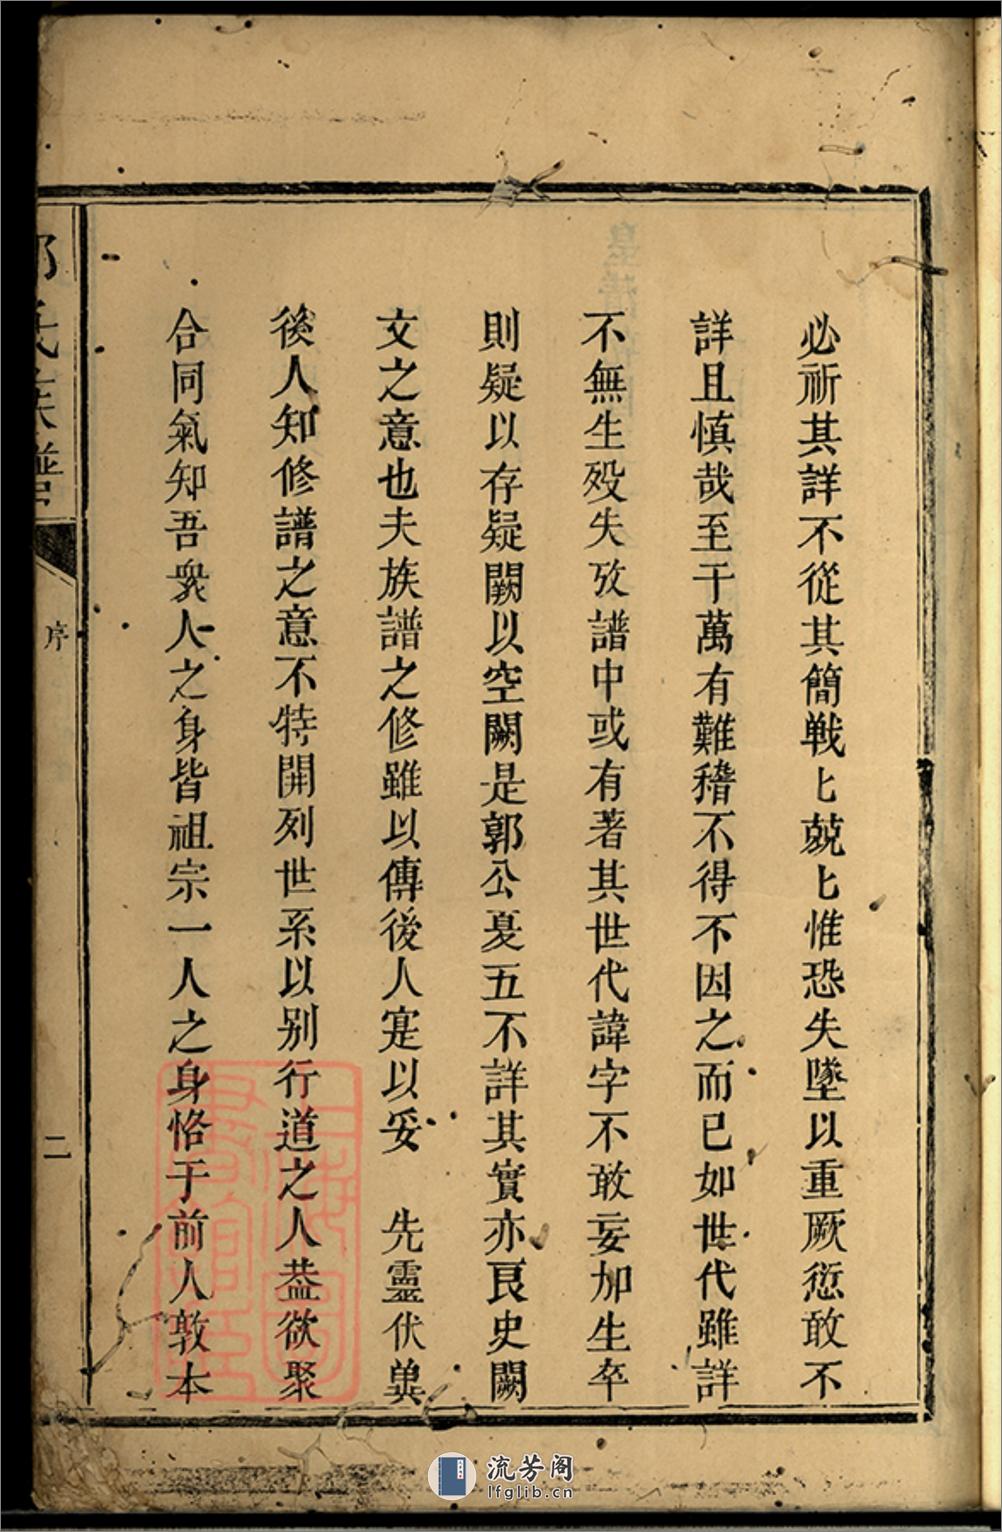 必祈其詳不從其簡戦匕兢匕惟恐失墜以重厥愆敢不
詳且慎哉至于萬有難稽不得不因之而已如世代雖詳
不無生殁失攷譜中或有著其世代諱字不敢妄加生卒
則疑以存疑闕以空闕是郭公夏五不詳其實亦良史闕
文之意也夫族譜之修雖以傳後人寔以妥　先靈伏兾
後人知修譜之意不特開列世系以别行道之人葢欲聚
合同氣知吾衆人之身皆祖宗一人之身恪于前人敦本
氏族譜
序
二
上海圖
書館藏
流芳阁
lfglib.cn